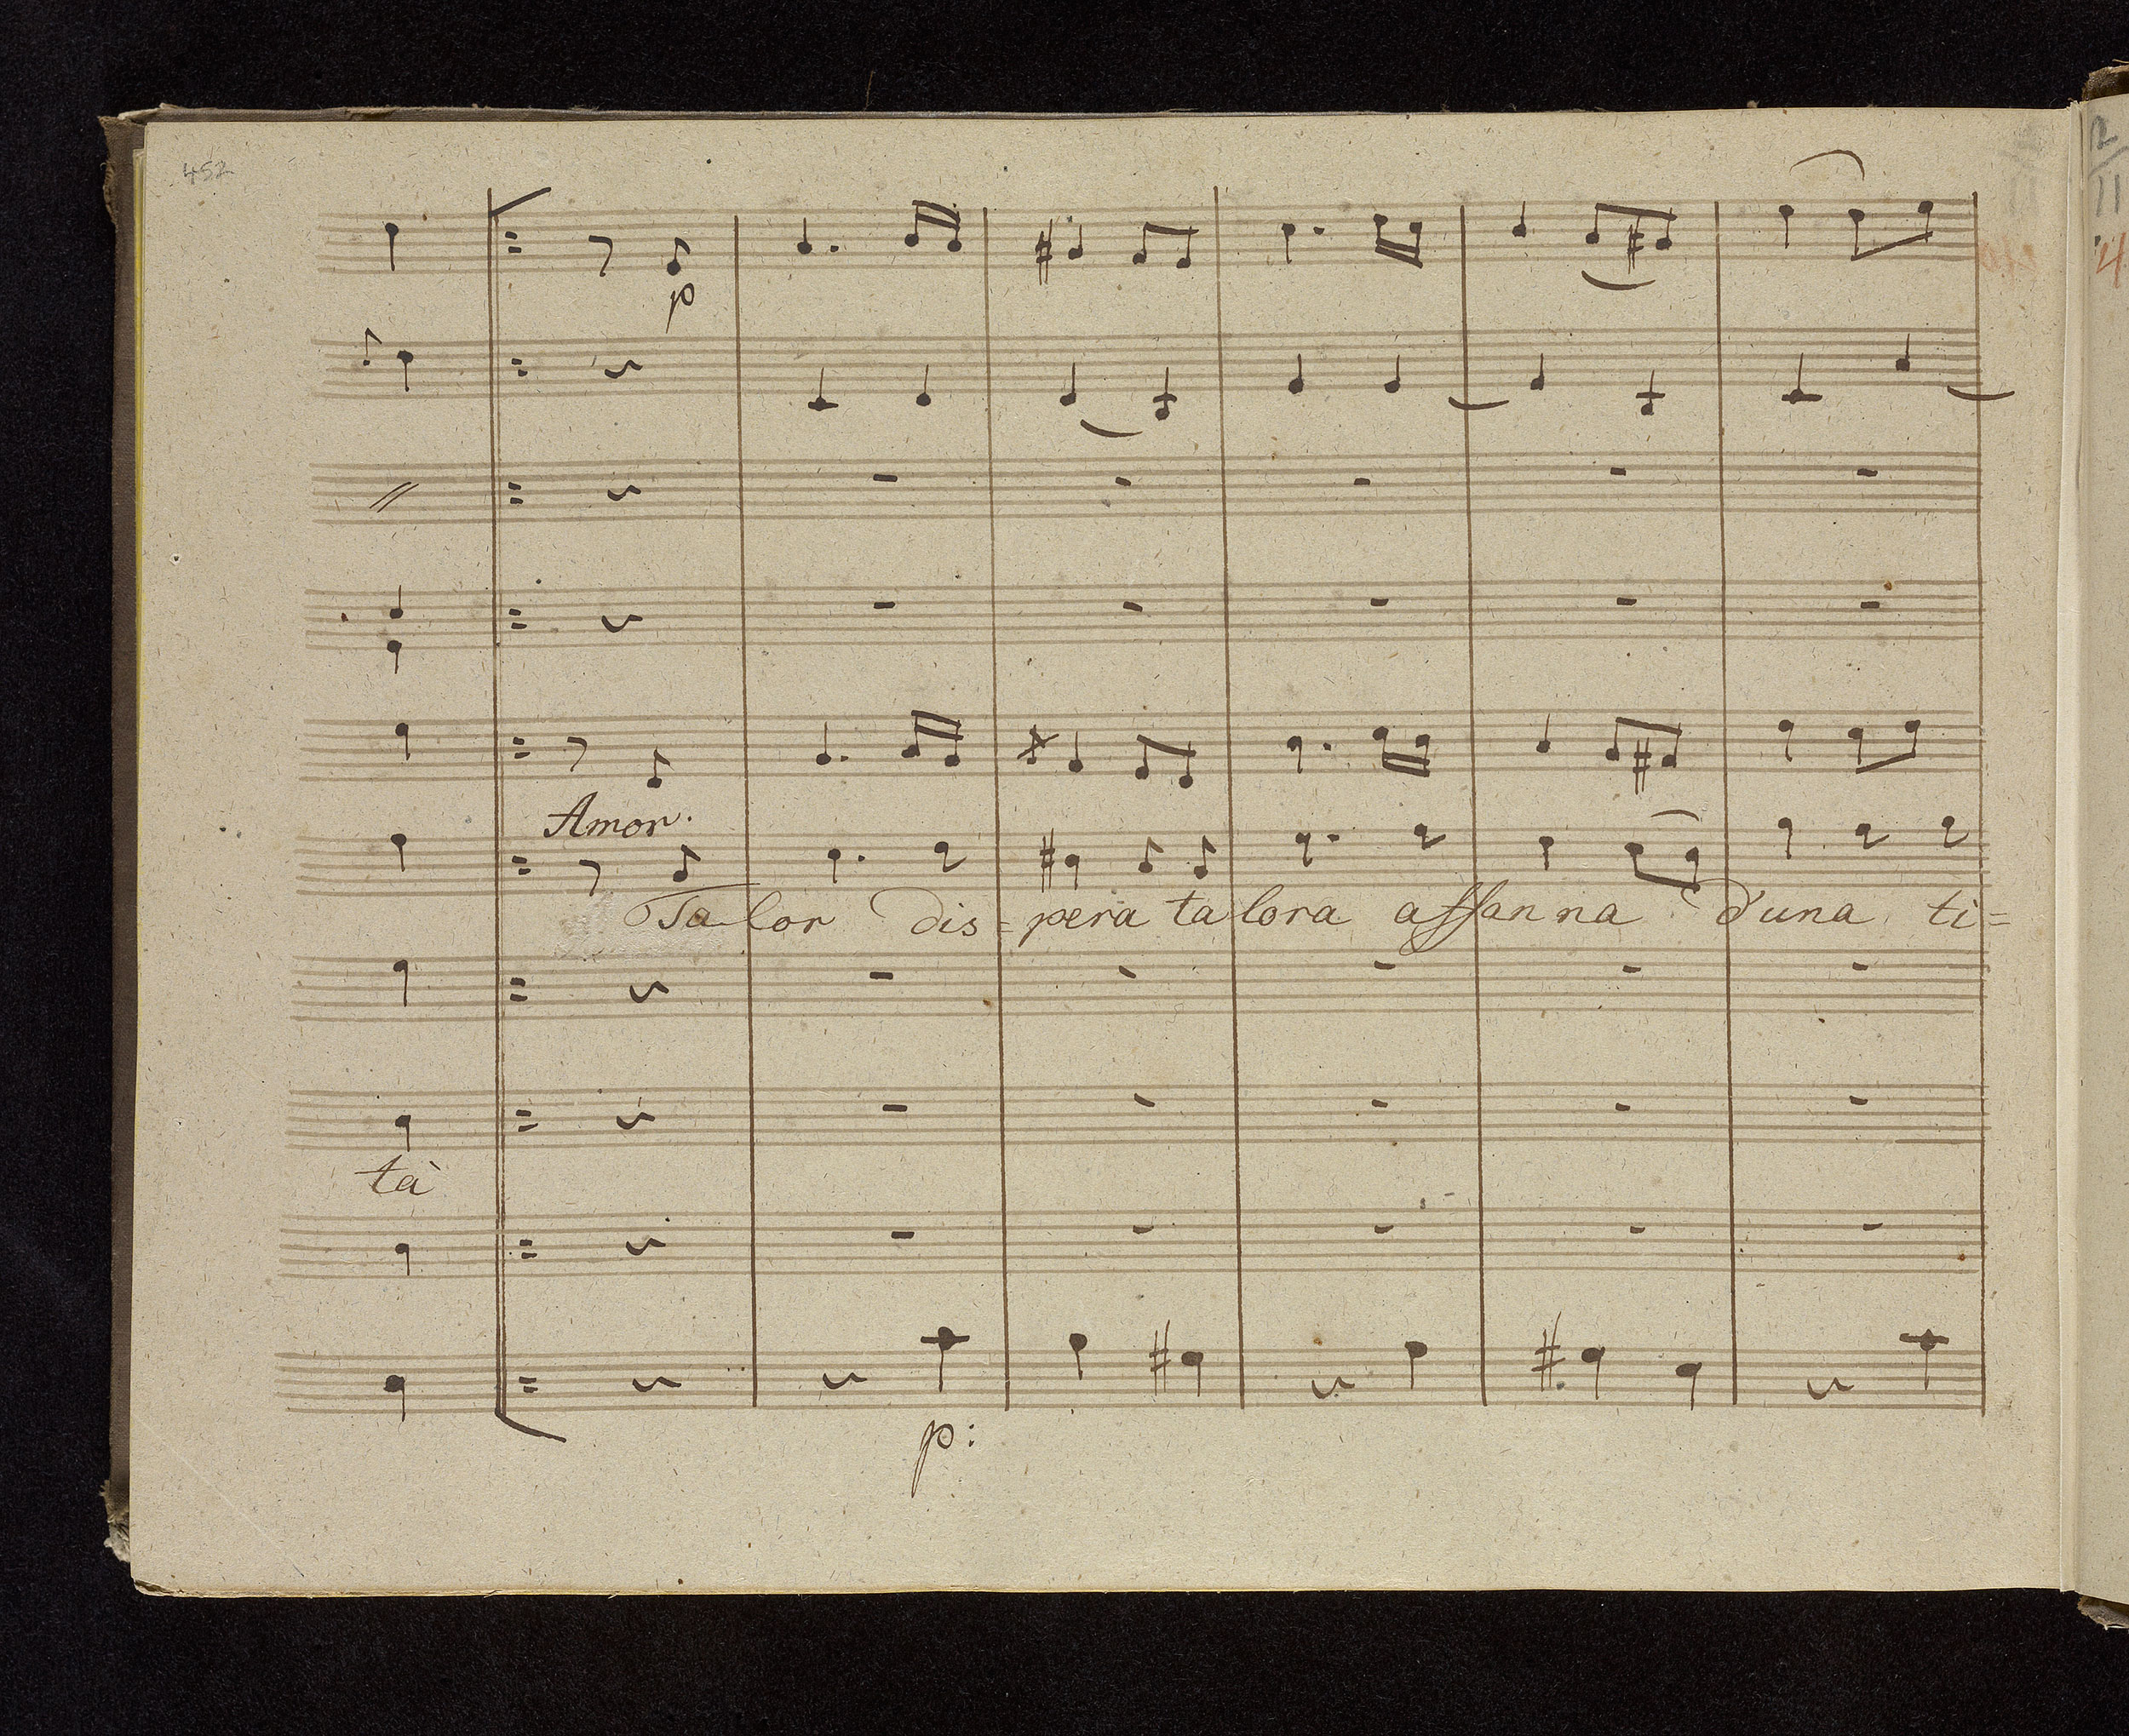 452
p
Amor.
Talor dis=pera talora affanna d'una ti=
tà
p:
2
11
4